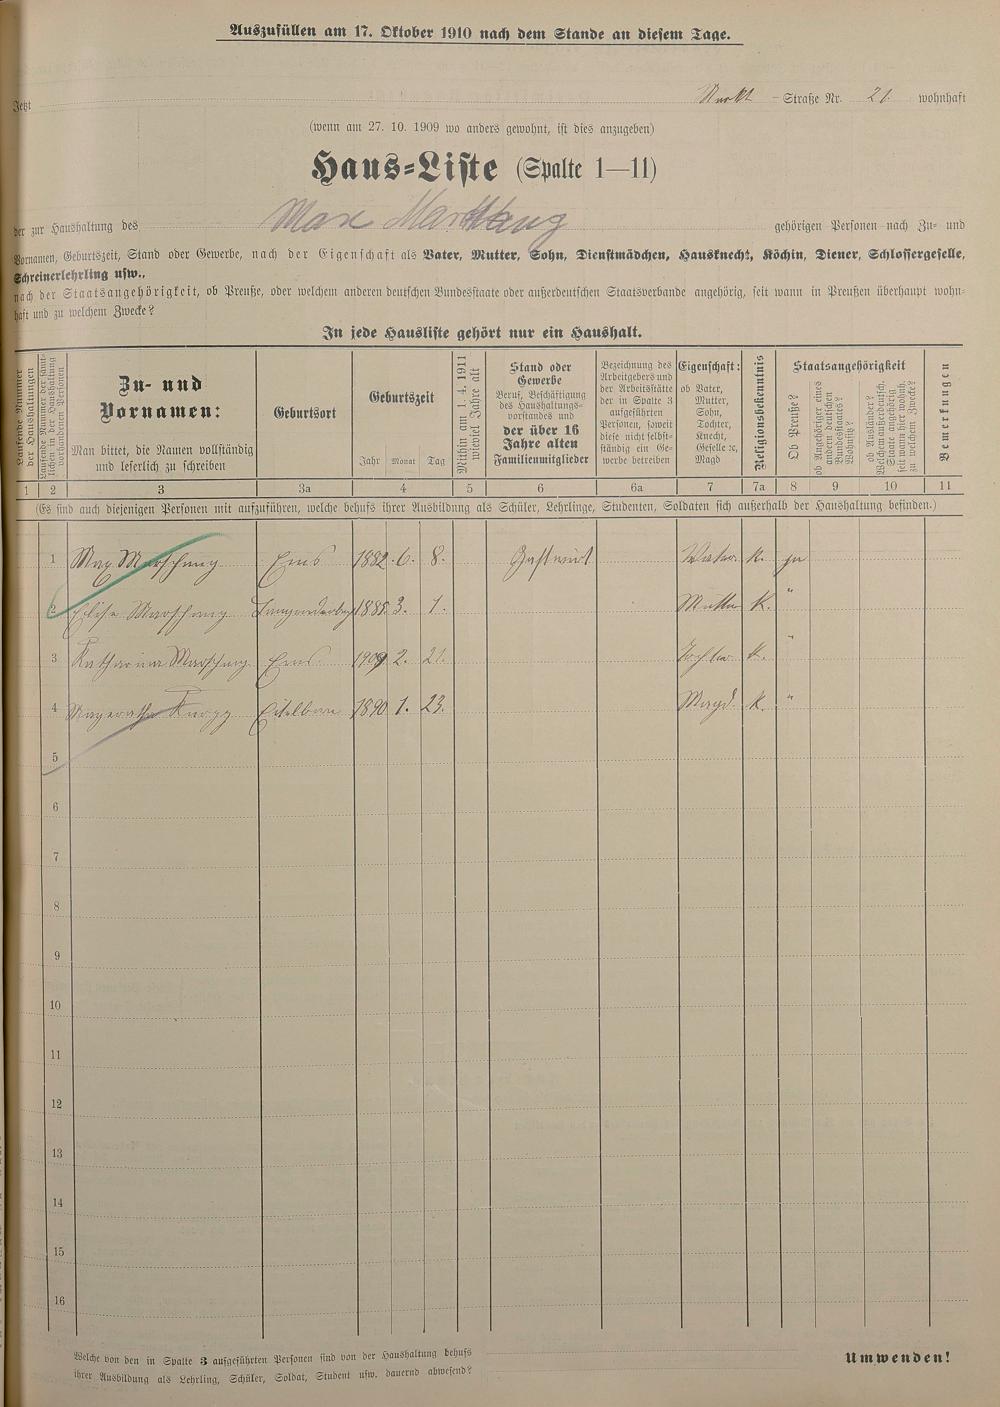 Auszufüllen am 17. Oktober 1910 nach dem Stande an diesem Tage.
Jetzt Markt -Straße Nr. 21. wohnhaft
(wenn am 27. 10. 1909 wo anders gewohnt, ist dies anzugeben)
Haus-Liste (Spalte 1—11)
der zur Haushaltung des Max gehörigen Personen nach Zu- und
Vornamen, Geburtszeit, Stand oder Gewerbe, nach der Eigenschaft als Vater, Mutter, Sohn, Dienstmädchen, Hausknecht, Köchin, Diener, Schlossergeselle,
Schreinerlehrling usw.,
nach der Staatsangehörigkeit, ob Preuße, oder welchem anderen deutschen Bundesstaate oder außerdeutschen Staatsverbande angehörig, seit wann in Preußen überhaupt wohn-
haft und zu welchem Zwecke?
In jede Hausliste gehört nur ein Haushalt.
Laufende Nummer
der Haushaltungen
Laufende Nummer der sämt-
lichen in der Haushaltung
vorhandenen Personen
Zu- und
Vornamen:
Man bittet, die Namen vollständig
und leserlich zu schreiben
Geburtsort
Geburtszeit
Jahr Monat Tag
Mithin am 1. 4. 1911
wieviel Jahre alt
Stand oder
Gewerbe
Beruf, Beschäftigung
des Haushaltungs-
vorstandes und
der über 16
Jahre alten
Familienmitglieder
Bezeichnung des
Arbeitgebers und
der Arbeitsstätte
der in Spalte 3
aufgeführten
Personen, soweit
diese nicht selbst-
ständig ein Ge-
werbe betreiben
Eigenschaft:
ob Vater,
Mutter,
Sohn,
Tochter,
Knecht,
Geselle ꝛc,
Magd
Religionsbekenntnis
Staatsangehörigkeit
Ob Preuße?
ob Angehöriger eines
andern deutschen
Bundesstaates?
Wohnsitz?
ob Ausländer?
Welchem außerdeutsch.
Staate angehörig
seit wann hier wohnh.
zu welchem Zwecke?
Bemerkungen
1 2 3 3a 4 5 6 6a 7 7a 8 9 10 11
(Es sind auch diejenigen Personen mit aufzuführen, welche behufs ihrer Ausbildung als Schüler, Lehrlinge, Studenten, Soldaten sich außerhalb der Haushaltung befinden.)
1 Max Marschang Ems 1882. 6. 8. Gastwirt Vater K. ja
2 Elise Marschang 1888 3. 1. Mutter K. "
3 Katharina Marschang Ems 1909 2. 21. Tochter K. "
4 1890 1. 23. Magd. K. "
5
6
7
8
9
10
11
12
13
14
15
16
Welche von den in Spalte 3 aufgeführten Personen sind von der Haushaltung behufs
ihrer Ausbildung als Lehrling, Schüler, Soldat, Student usw. dauernd abwesend?
Umwenden!